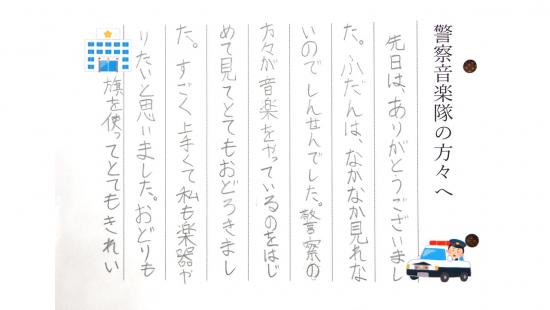 警察音楽隊の方々へ
先日は、ありがとうございまし
た。ふだんは、なかなか見れな
いのでしんせんでした。警察の
方々が音楽をやっているのをはじ
めて見てとてもおどろきまし
た。すごく上手くて私も楽器や
りたいと思いました。おどりも
旗を使ってとてもきれい